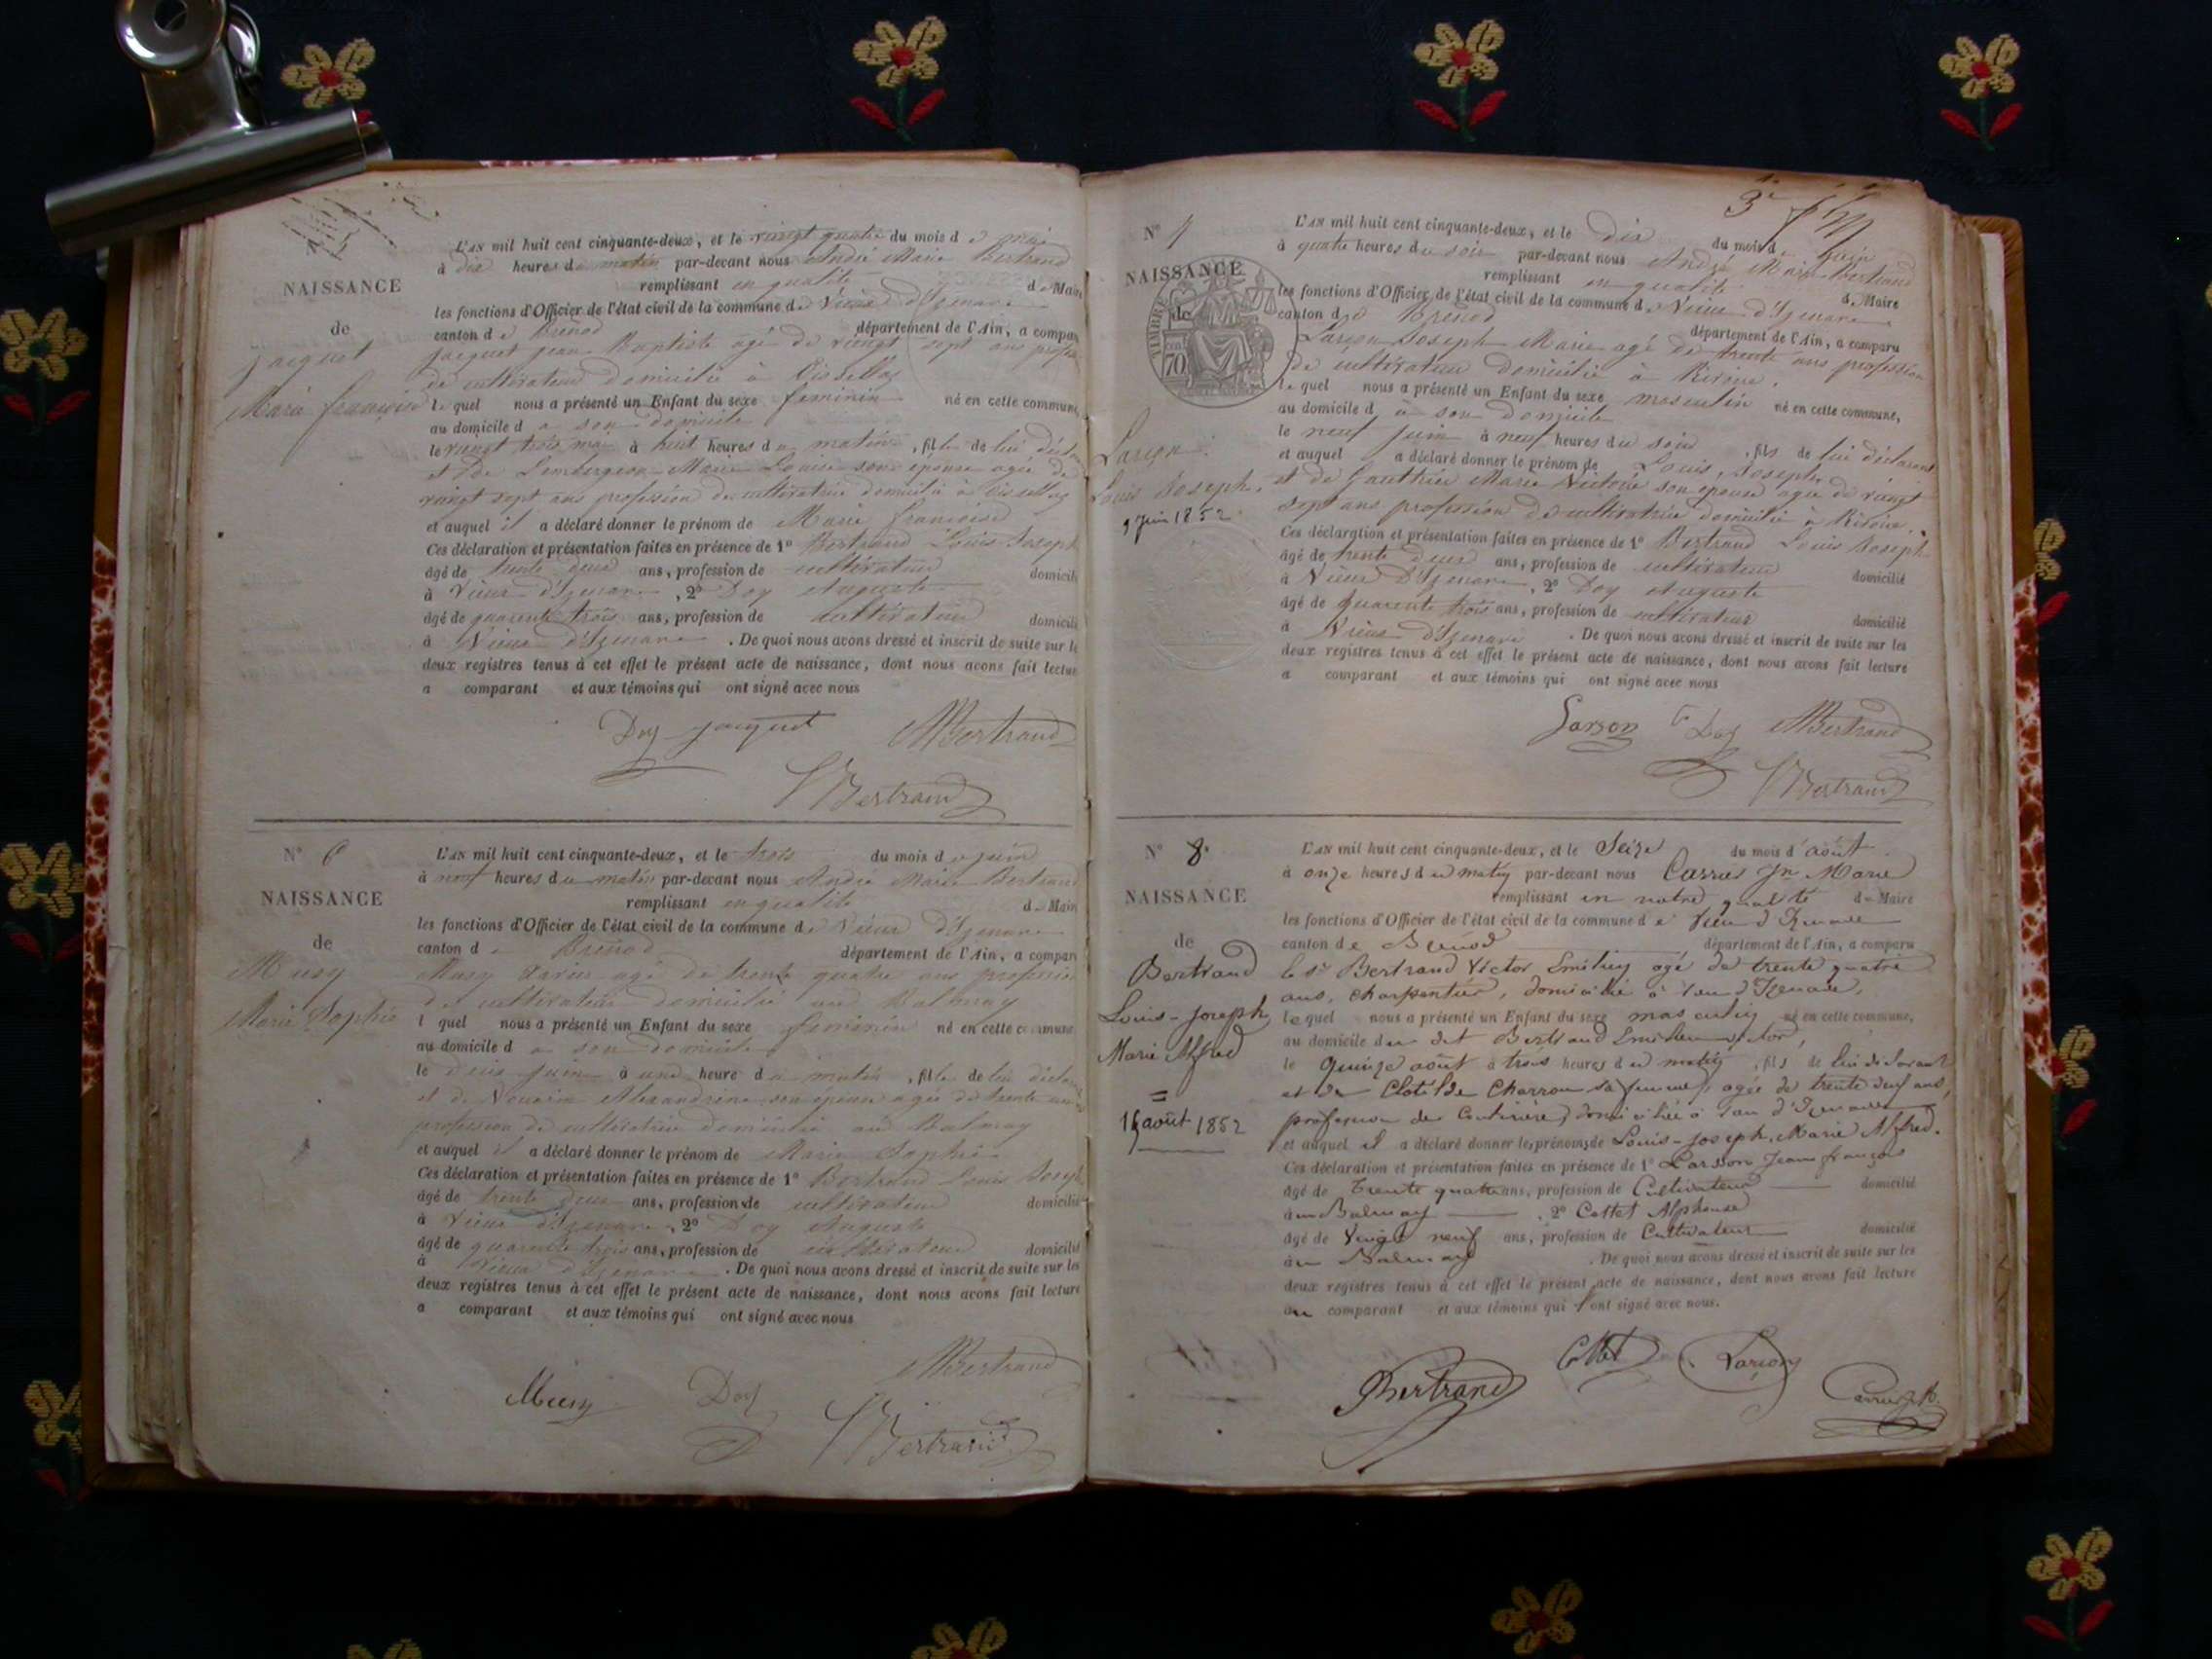 5
NAISSANCE
de
Jacquet
Marie françoise
L'AN mil huit cent cinquante-deux, et le vingt quatre du mois de mai
à dix heures du matin par-devant nous André Marie Bertrand
remplissant en qualité de Maire
les fonctions d'Officier de l'état civil de la commune de Vieux d'Izenave
canton de Brénod département de l'Ain, a comparu
Jacquet jean Baptiste agé de vingt sept ans profession
de cultivateur domicilié à
lequel nous a présenté un Enfant du sexe feminin né en cette commune,
au domicile d à son domicile
le vingt trois mai à huit heures du matin, fille de lui déclarant
et de Marie Louise son épouse agée de
vingt sept ans profession de cultivatrice domicilié à
et auquel il a déclaré donner le prénom de Marie françoise
Ces déclaration et présentation faites en présence de 1° Bertrand Louis Joseph
âgé de trente deux ans, profession de cultivateur domicilié
à Vieux d'Izenave, 2° Doy Auguste
âgé de quarente trois ans, profession de cultivateur domicilié
à Vieux d'Izenave. De quoi nous avons dressé et inscrit de suite sur les
deux registres tenus à cet effet le présent acte de naissance, dont nous avons fait lecture
a comparant et aux témoins qui ont signé avec nous
Doy jacquet ABertrand
LBertrand
N° 6
NAISSANCE
de
Musy
Marie Sophie
L'AN mil huit cent cinquante-deux, et le trois du mois de juin
à neuf heures du matin par-devant nous André Marie Bertrand
remplissant en qualité de Maire
les fonctions d'Officier de l'état civil de la commune de Vieux d'Izenave
canton de Brénod département de l'Ain, a comparu
Musy Xavier agé de trente quatre ans profession
de cultivateur domicilié au Balmay
l quel nous a présenté un Enfant du sexe feminin né en cette commune,
au domicile d à son domicile
le deux juin à une heure du matin, fille de lui déclarant
et de Alexandrine son épouse agée de trente
profession de cultivatrice domicilié au Balmay
et auquel il a déclaré donner le prénom de Marie Sophie
Ces déclaration et présentation faites en présence de 1° Bertrand Louis Joseph
âgé de trente deux ans, profession de cultivateur domicilié
à Vieux d'Izenave, 2° Doy Auguste
âgé de quarente trois ans, profession de cultivateur domicilié
à Vieux d'Izenave. De quoi nous avons dressé et inscrit de suite sur les
deux registres tenus à cet effet le présent acte de naissance, dont nous avons fait lecture
a comparant et aux témoins qui ont signé avec nous
ABertrand
Musy Doy LBertrand
3e
N° 7
NAISSANCE
de
TIMBRE
70
Larçon
Louis Joseph.
9 Juin 1852
L'AN mil huit cent cinquante-deux, et le dix du mois de juin
à quatre heures du soir par-devant nous André Marie Bertrand
remplissant en qualité de Maire
les fonctions d'Officier de l'état civil de la commune de Vieux d'Izenave
canton de Brénod département de l'Ain, a comparu
Larçon Joseph Marie agé de trente ans profession
de cultivateur domicilié à Rivoire.
le quel nous a présenté un Enfant du sexe masculin né en cette commune,
au domicile d à son domicile
le neuf juin à neuf heures du soir, fils de lui déclarant
et auquel a déclaré donner le prénom de Louis, Joseph,
et de Gauthier Marie Victoire son épouse agée de vingt
sept ans profession de cultivatrice domicilié à Rivoire.
Ces déclaration et présentation faites en présence de 1° Bertrand Louis Joseph
âgé de trente deux ans, profession de cultivateur domicilié
à Vieux D'Izenave, 2° Doy Auguste
âgé de quarente trois ans, profession de cultivateur domicilié
à Vieux d'Izenave. De quoi nous avons dressé et inscrit de suite sur les
deux registres tenus à cet effet le présent acte de naissance, dont nous avons fait lecture
a comparant et aux témoins qui ont signé avec nous
Larçon Doy ABertrand
LBertrand
N° 8.
NAISSANCE
de
Bertrand
Louis-Joseph
Marie Alfred
=
15 août 1852
L'AN mil huit cent cinquante-deux, et le Seize du mois d'août
à onze heures du matin par-devant nous Carrier Jn Marie
remplissant en notre qualité de Maire
les fonctions d'Officier de l'état civil de la commune de Vieu d'Izenave
canton de Brénod département de l'Ain, a comparu
le sr Bertrand Victor Emilien agé de trente quatre
ans, charpentier, domicilié à Vieu d'Izenave,
lequel nous a présenté un Enfant du sexe masculin né en cette commune,
au domicile du dit Bertrand Emilien victor,
le quinze août à trois heures du matin, fils de lui déclarant
et de Clotilde Charron sa femme, agée de trente deux ans,
profession de Couturière, domiciliée à Vieu d'Izenave
et auquel il a déclaré donner les prénoms de Louis-Joseph, Marie Alfred.
Ces déclaration et présentation faites en présence de 1° Larson Jean françois
âgé de Trente quatre ans, profession de Cultivateur domicilié
à au Balmay, 2° Cottet Alphonse
âgé de Vingt neuf ans, profession de Cultivateur domicilié
à au Balmay. De quoi nous avons dressé et inscrit de suite sur les
deux registres tenus à cet effet le présent acte de naissance, dont nous avons fait lecture
au comparant et aux témoins qui l'ont signé avec nous.
Bertrand Cottet Larçon
Carrier